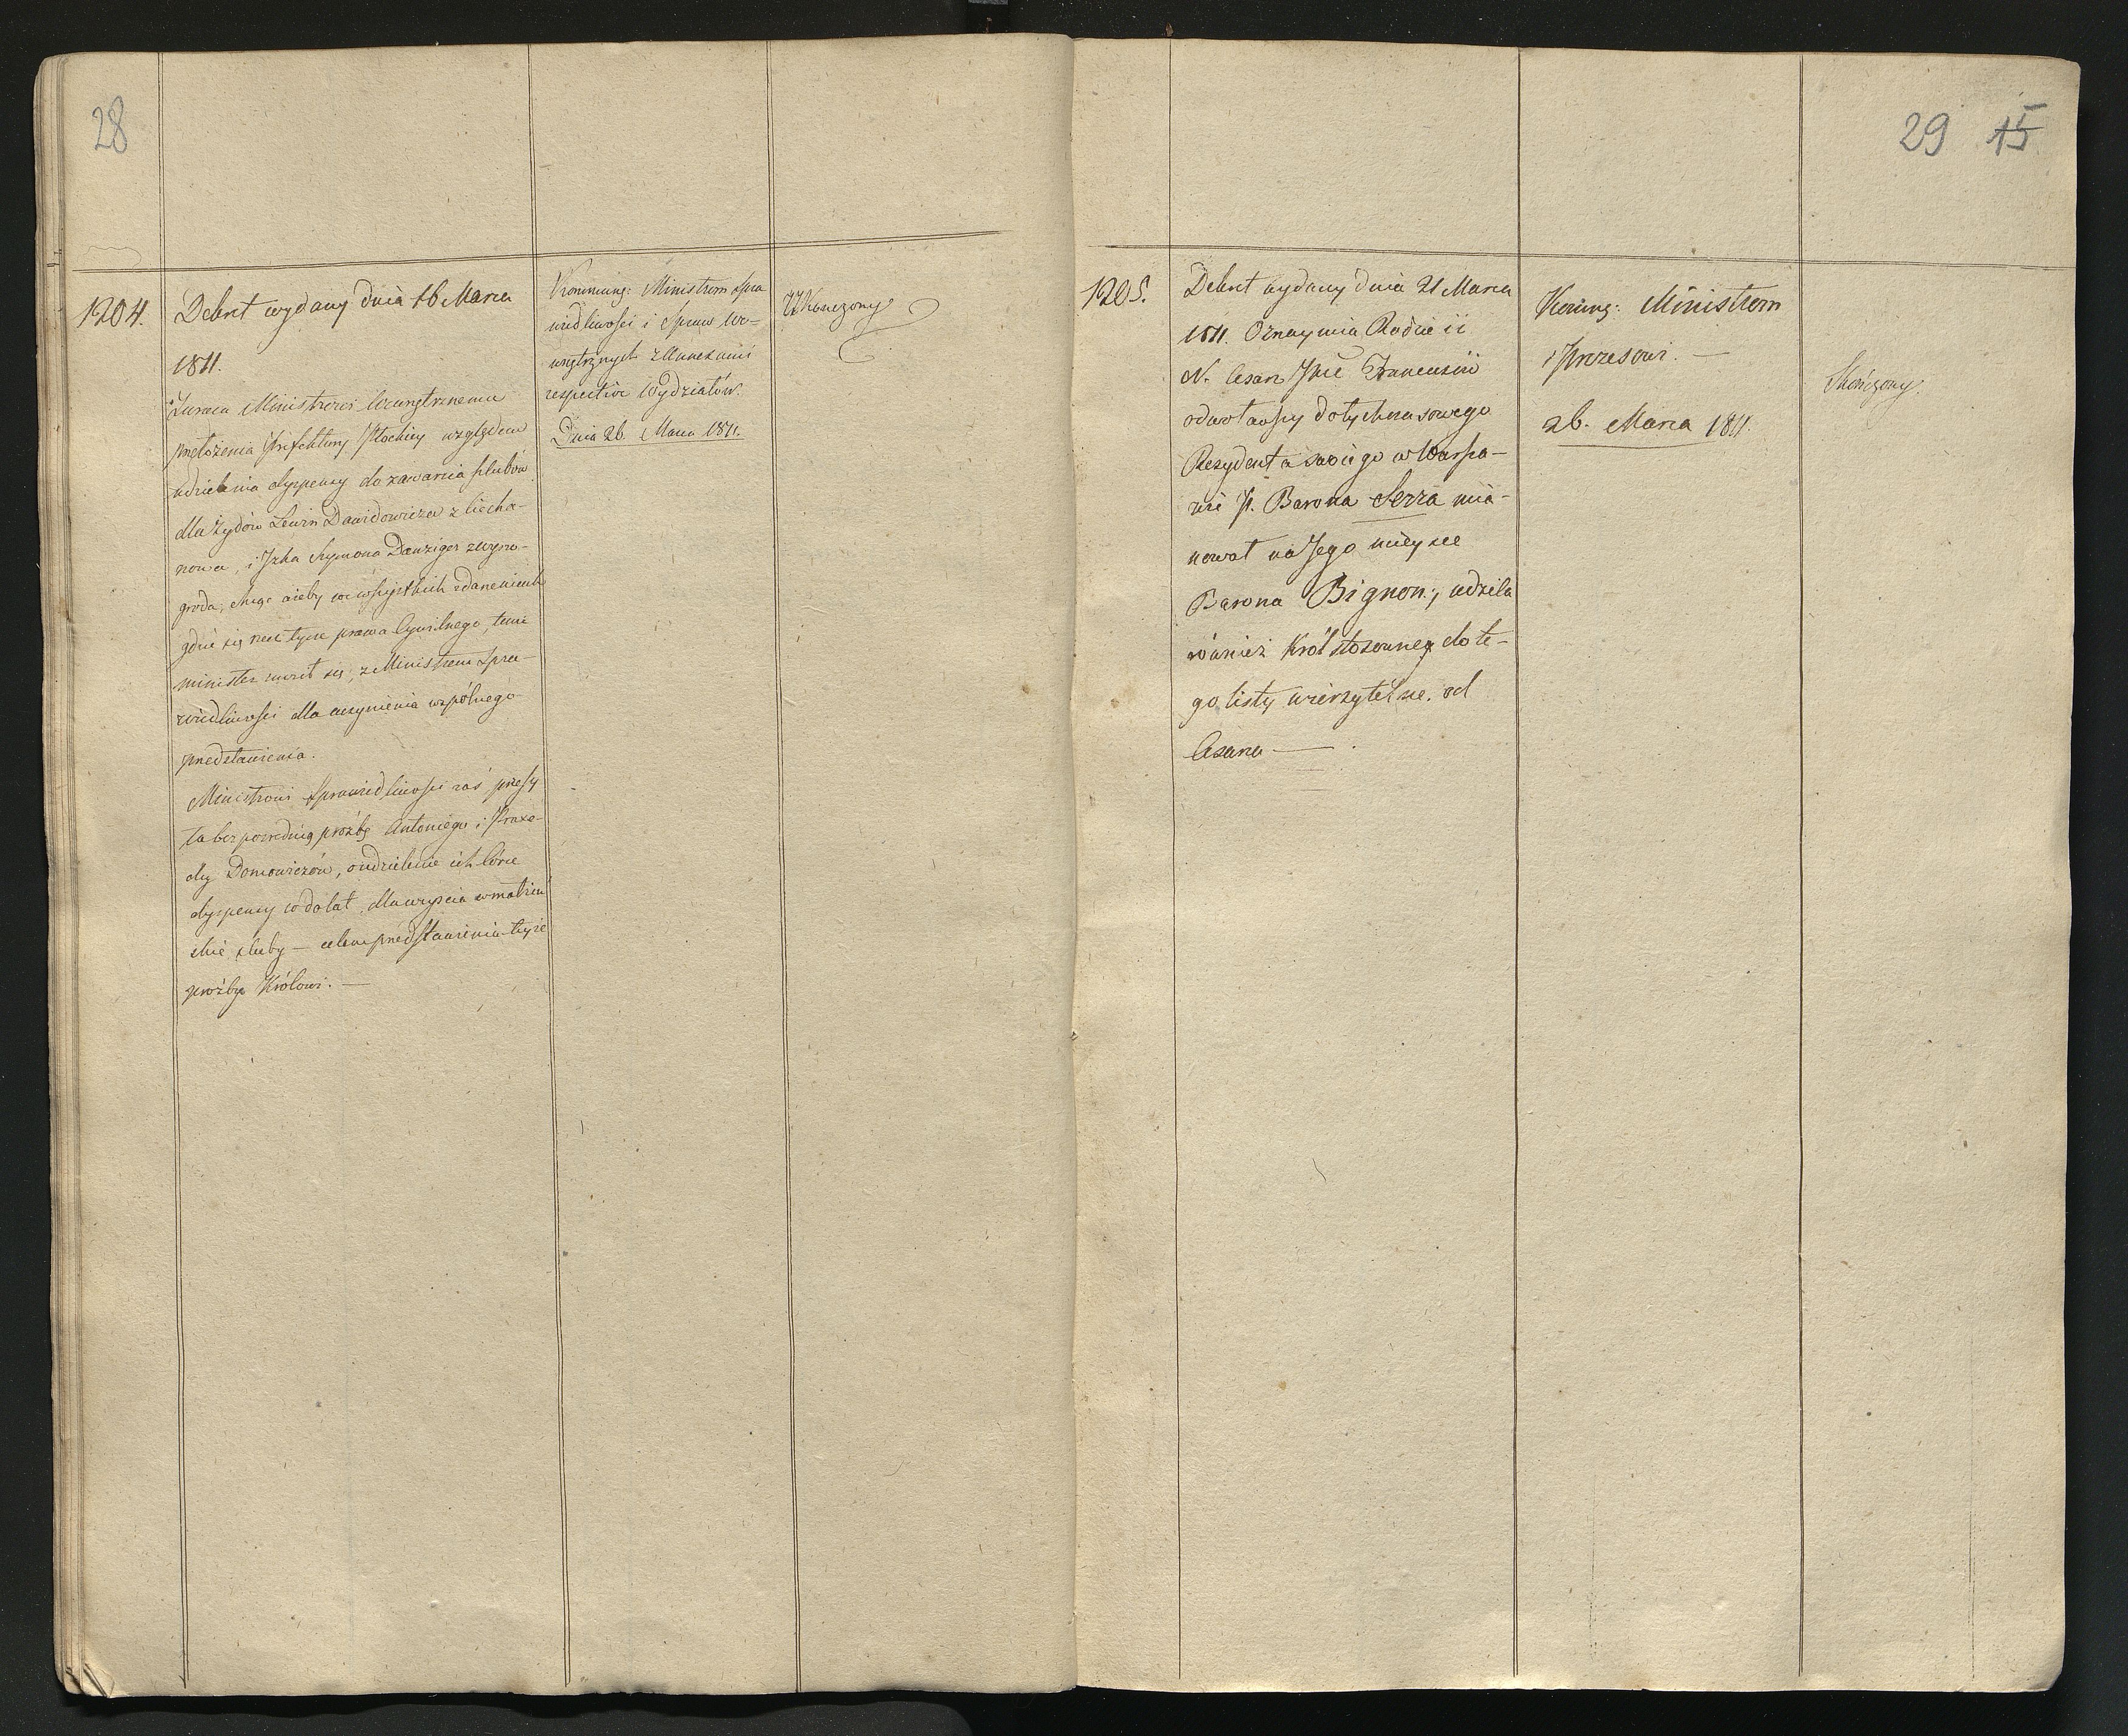 28
1204.
Dekret wydany dnia 16 Marca
1811.
Zwraca Ministrowi Wewnętrznemu
przełożenia Prefektury Płockiey względem
udzielenia dyspensy do zawarcia ślubów
dla Żydów Lewin Dawidowicza z Ciecha-
nowa, i Icka Szymona Danziger z Wyszo-
groda, chcąc ażeby we wszystkich zdarzeniach
gdzie się rzecz tycze prawa Cywilnego, tenże
minister znosił się, z Ministrem Spra-
wiedliwości dla uczynienia wspólnego
przedstawienia.
Ministrowi Sprawiedliwości zaś przesy
ła bezpośrednią prośbę Antoniego i Praxe-
dy Domowiczów, o udzielenie ich Córce
dyspensy co do lat, dla wyjścia w małżeń
skie śluby — celem przedstawienia teyże
prośby Królowi. —
Kommunig: Ministrom Spra
wiedliwości i Spraw We-
wnętrznych z Annexami
respective Wydziałów.
Dnia 26 Marca 1811.
Ukończony
29 15
1205.
Dekret wydany dnia 21 Marca
1811. Oznaymia Radzie iż
N. Cesarz Jmć Francuzki
odwoławszy dotychczasowego
Rezydenta swoiego w Warsza-
wie P. Barona Serra mia-
nował na Jego mieysce
Barona Bignon; udziela
również Król stosowney do te-
go listy wierzytelne. od
Cesarza —
Komung: Ministrom
i Prezesowi. —
26. Marca 1811.
Skończony.